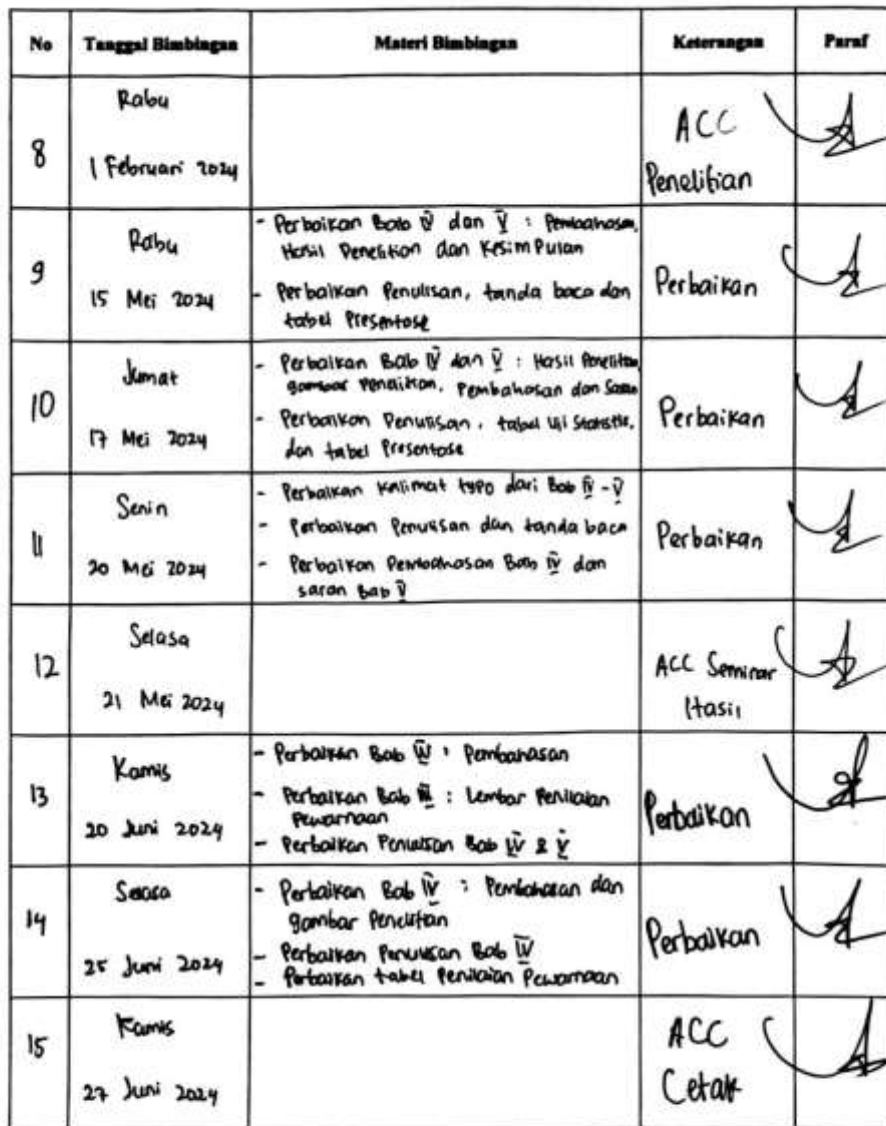 No Tanggal Bimbingan Materi Bimbingan Keterangan Paraf
8
Rabu
1 Februari 2024
ACC
Penelitian
9
Rabu
15 Mei 2024
- Perbaikan Bab IV dan V : Pembahasan,
Hasil Penelitian dan Kesimpulan
- Perbaikan Penulisan, tanda baca dan
tabel Presentase
Perbaikan
10
Jumat
17 Mei 2024
- Perbaikan Bab IV dan V : Hasil Penelitian
gambar Penelitian, Pembahasan dan Saran
- Perbaikan Penulisan, tabel Uji Statistik,
dan tabel Presentase
Perbaikan
11
Senin
20 Mei 2024
- Perbaikan Kalimat typo dari Bab IV - V
- Perbaikan Penulisan dan tanda baca
- Perbaikan Pembahasan Bab IV dan
saran Bab V
Perbaikan
12
Selasa
21 Mei 2024
ACC Seminar
Hasil
13
Kamis
20 Juni 2024
- Perbaikan Bab IV : Pembahasan
- Perbaikan Bab : Lembar Penilaian
Pewarnaan
- Perbaikan Penulisan Bab IV & V
Perbaikan
14
Selasa
25 Juni 2024
- Perbaikan Bab IV : Pembahasan dan
gambar Penelitian
- Perbaikan Penulisan Bab IV
- Perbaikan tabel Penilaian Pewarnaan
Perbaikan
15
Kamis
27 Juni 2024
ACC
Cetak